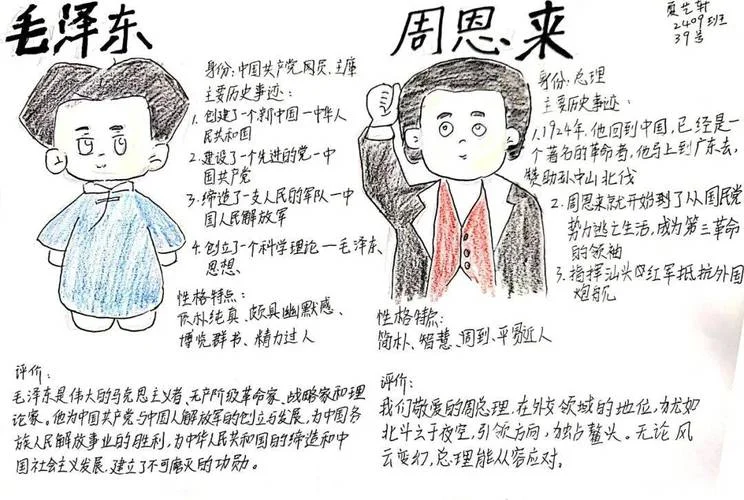 毛泽东
身份:中国共产党网员、主席
主要历史事迹:
1.创建了一个新中国一中华人
民共和国
2.建设了一个先进的党一中
国共产党
3.缔造了一支人民的军队一中
国人民解放军
4.创立了一个科学理论一毛泽东
思想、
性格特点:
质朴纯真、颇具幽默感、
博览群书、精力过人
评价:
毛泽东是伟大的马克思主义者、无产阶级革命家、战略家和理
论家。他为中国共产党与中国人解放军的创立与发展,为中国各
族人民解放事业的胜利,为中华人民共和国的缔造和中
国社会主义发展,建立了不可磨灭的功勋。
周恩来
夏艺轩
2409班
39号
身份:总理
主要历史事迹:
1.1924年,他回到中国,已经是一
个著名的革命者,他马上到广东去,
赞助孙中山北伐
2.周恩来就开始到了从国民党
势力逃亡生活,成为第三革命
的领袖
3.指挥汕头红军抵抗外国
炮航
性格特点:
简朴、智慧、周到、平易近人
评价:
我们敬爱的周总理,在外交领域的地位,尤如
北斗之于夜空,引领方向,独占鳌头。无论风
云变幻,总理能从容应对。